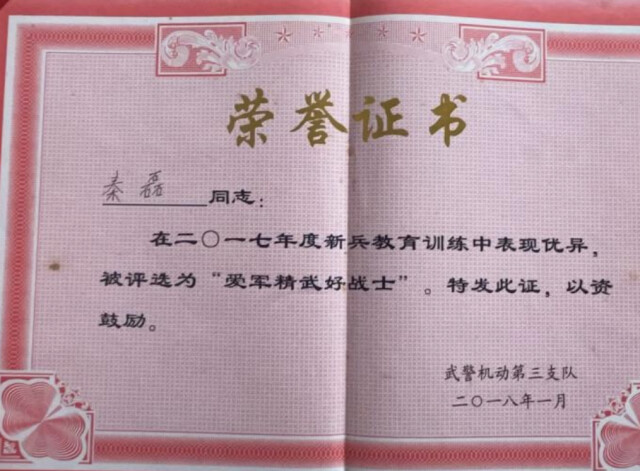 荣誉证书
秦磊同志：
在二〇一七年度新兵教育训练中表现优异，
被评选为“爱军精武好战士”。特发此证，以资
鼓励。
武警机动第三支队
二〇一八年一月